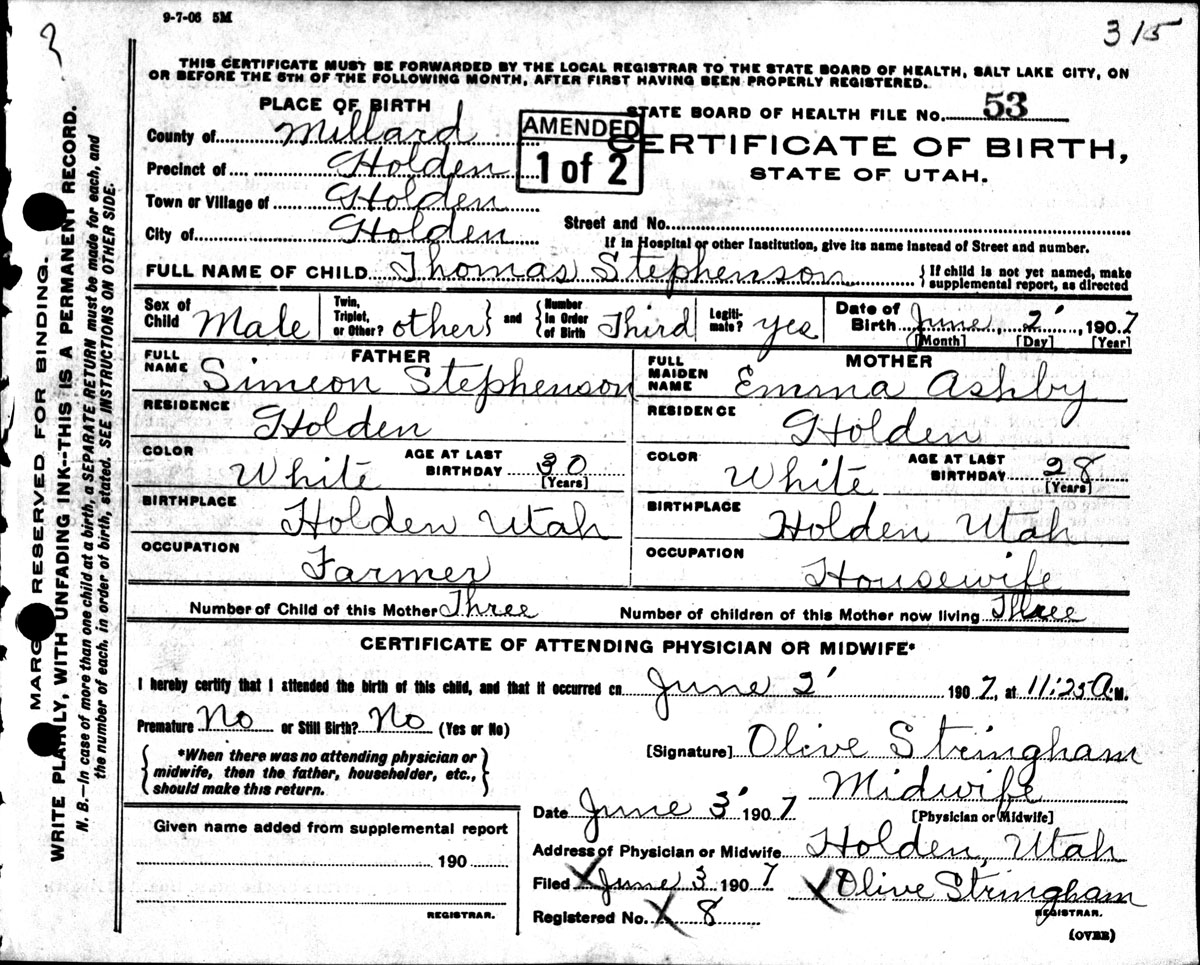 9-7-06 5M
3 15
?
THIS CERTIFICATE MUST BE FORWARDED BY THE LOCAL REGISTRAR TO THE STATE BOARD OF HEALTH, SALT LAKE CITY, ON
OR BEFORE THE 5TH OF THE FOLLOWING MONTH, AFTER FIRST HAVING BEEN PROPERLY REGISTERED.
PLACE OF BIRTH
STATE BOARD OF HEALTH FILE No. 53
County of Millard
AMENDED
1 of 2
CERTIFICATE OF BIRTH,
STATE OF UTAH.
Precinct of Holden
Town or Village of Holden
City of Holden
Street and No.
If in Hospital or other Institution, give its name instead of Street and number.
FULL NAME OF CHILD Thomas Stephenson
{ If child is not yet named, make
supplemental report, as directed
Sex of Child Male
Twin, Triplet, or Other? other } and { Number in Order of Birth Third
Legiti-mate? yes
Date of Birth June, 2', 1907
[Month] [Day] [Year]
FATHER
FULL NAME Simeon Stephenson
MOTHER
FULL MAIDEN NAME Emma Ashby
RESIDENCE Holden
RESIDENCE Holden
COLOR White AGE AT LAST BIRTHDAY 30 [Years]
COLOR White AGE AT LAST BIRTHDAY 28 [Years]
BIRTHPLACE Holden Utah
BIRTHPLACE Holden Utah
OCCUPATION Farmer
OCCUPATION Housewife
Number of Child of this Mother Three
Number of children of this Mother now living Three
CERTIFICATE OF ATTENDING PHYSICIAN OR MIDWIFE*
I hereby certify that I attended the birth of this child, and that it occurred on June 2' 1907, at 11:25 A.M.
Premature No or Still Birth? No (Yes or No)
{ *When there was no attending physician or
midwife, then the father, householder, etc.,
should make this return. }
[Signature] Olive Stringham
Midwife
[Physician or Midwife]
Date June 3' 1907
Address of Physician or Midwife Holden, Utah
Filed X June 3 1907 X Olive Stringham
REGISTRAR.
Registered No. X 8
(OVER)
Given name added from supplemental report
190
REGISTRAR.
MARGIN RESERVED FOR BINDING.
WRITE PLAINLY, WITH UNFADING INK--THIS IS A PERMANENT RECORD.
N. B.—In case of more than one child at a birth, a SEPARATE RETURN must be made for each, and
the number of each, in order of birth, stated. SEE INSTRUCTIONS ON OTHER SIDE.